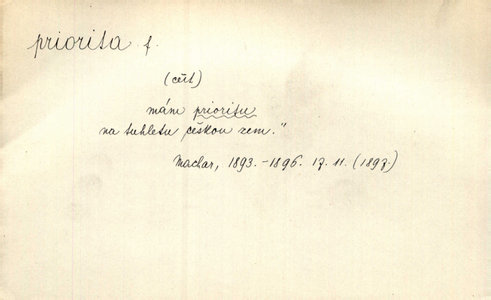 priorita f.
(čert)
mám prioritu
na tuhletu českou zem."
Machar, 1893.-1896. 17. 11. (1897.)